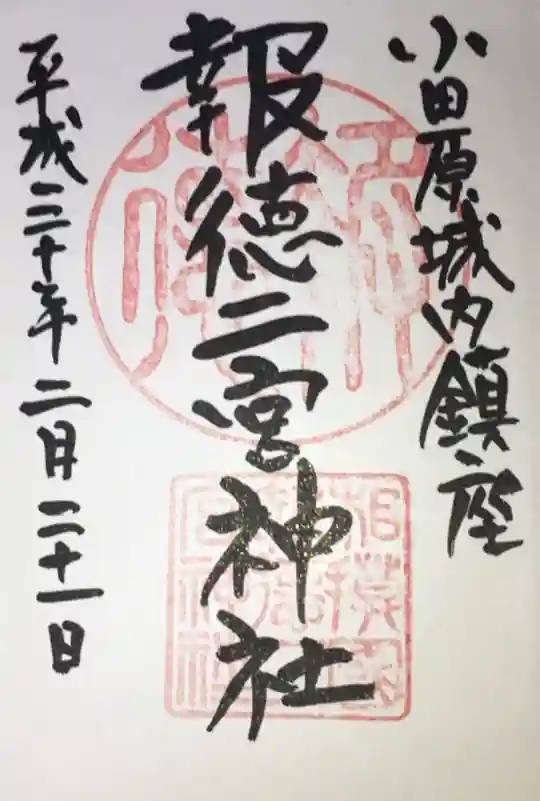 小田原城内鎮座
報徳二宮神社
平成三十年二月二十一日